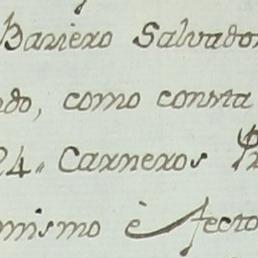 Bariero Salvador
ndo, como consta
24,, Carneros Pr
omismo è fecto